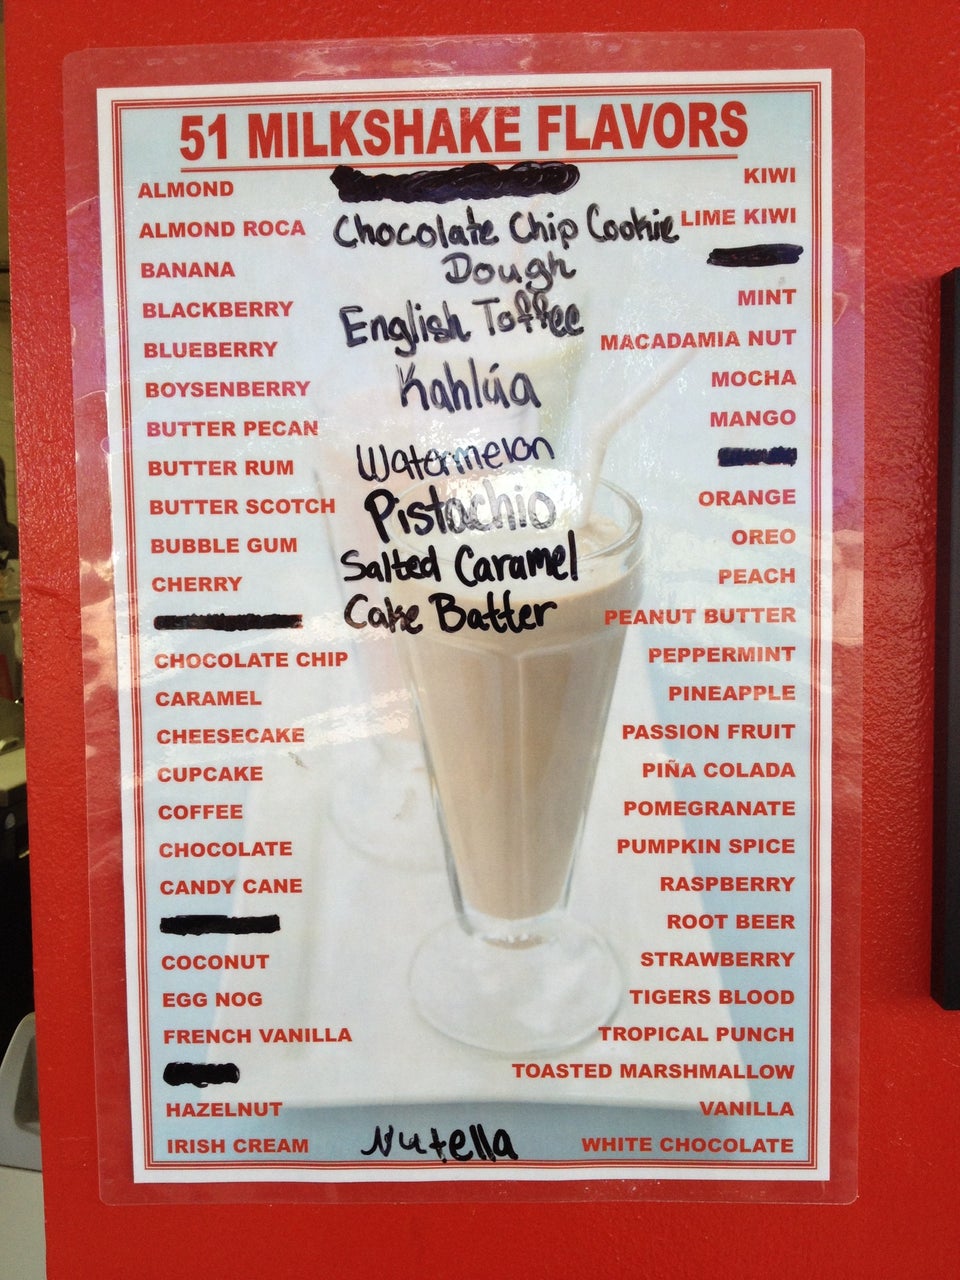 51 MILKSHAKE FLAVORS
ALMOND
ALMOND ROCA
BANANA
BLACKBERRY
BLUEBERRY
BOYSENBERRY
BUTTER PECAN
BUTTER RUM
BUTTER SCOTCH
BUBBLE GUM
CHERRY
CHOCOLATE CHIP
CARAMEL
CHEESECAKE
CUPCAKE
COFFEE
CHOCOLATE
CANDY CANE
COCONUT
EGG NOG
FRENCH VANILLA
HAZELNUT
IRISH CREAM
Chocolate Chip Cookie
Dough
English Toffee
Kahlúa
Watermelon
Pistachio
Salted Caramel
Cake Batter
Nutella
KIWI
LIME KIWI
MINT
MACADAMIA NUT
MOCHA
MANGO
ORANGE
OREO
PEACH
PEANUT BUTTER
PEPPERMINT
PINEAPPLE
PASSION FRUIT
PIÑA COLADA
POMEGRANATE
PUMPKIN SPICE
RASPBERRY
ROOT BEER
STRAWBERRY
TIGERS BLOOD
TROPICAL PUNCH
TOASTED MARSHMALLOW
VANILLA
WHITE CHOCOLATE